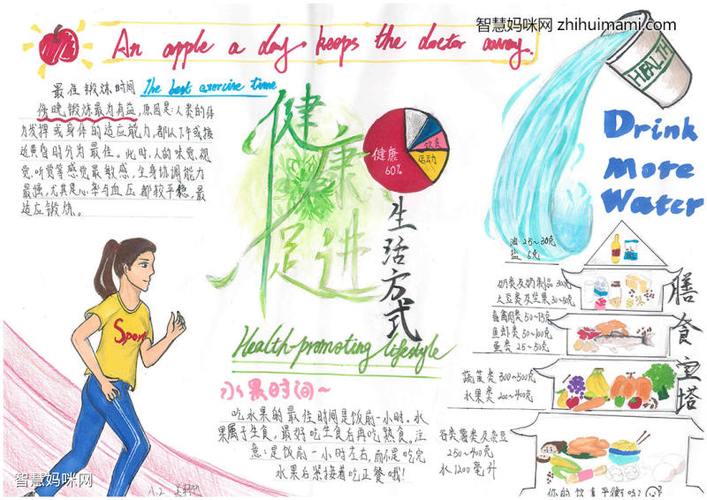 智慧妈咪网 zhihuimami.com
An apple a day keeps the doctor away.
最佳锻炼时间 The best exercise time
傍晚锻炼最为有益,原因是:人类的体
力发挥或身体的适应能力,都以下午或接
近黄昏时分为最佳。此时,人的味觉、视
觉、听觉等感觉最敏感,全身协调能力
最强,尤其是心率与血压都较平稳,最
适应锻炼。
健康促进
生活方式
Health-promoting lifestyle
健康
60%
运动
HEALTH
Drink
More
Water
油 25~30克
盐 6克
奶类及奶制品 300克
大豆类及坚果 30~50克
畜禽肉类 50~75克
鱼虾类 50~100克
蛋类 25~50克
蔬菜类 300~500克
水果类 200~400克
谷类薯类及杂豆
250~400克
水1200毫升
膳食宝塔
你的饮食平衡吗?
Sport
水果时间~
吃水果的最佳时间是饭前一小时。水
果属于生食,最好吃生食后再吃熟食。注
意:是饭前一小时左右,而不是吃完
水果后紧接着吃正餐哦!
智慧妈咪网